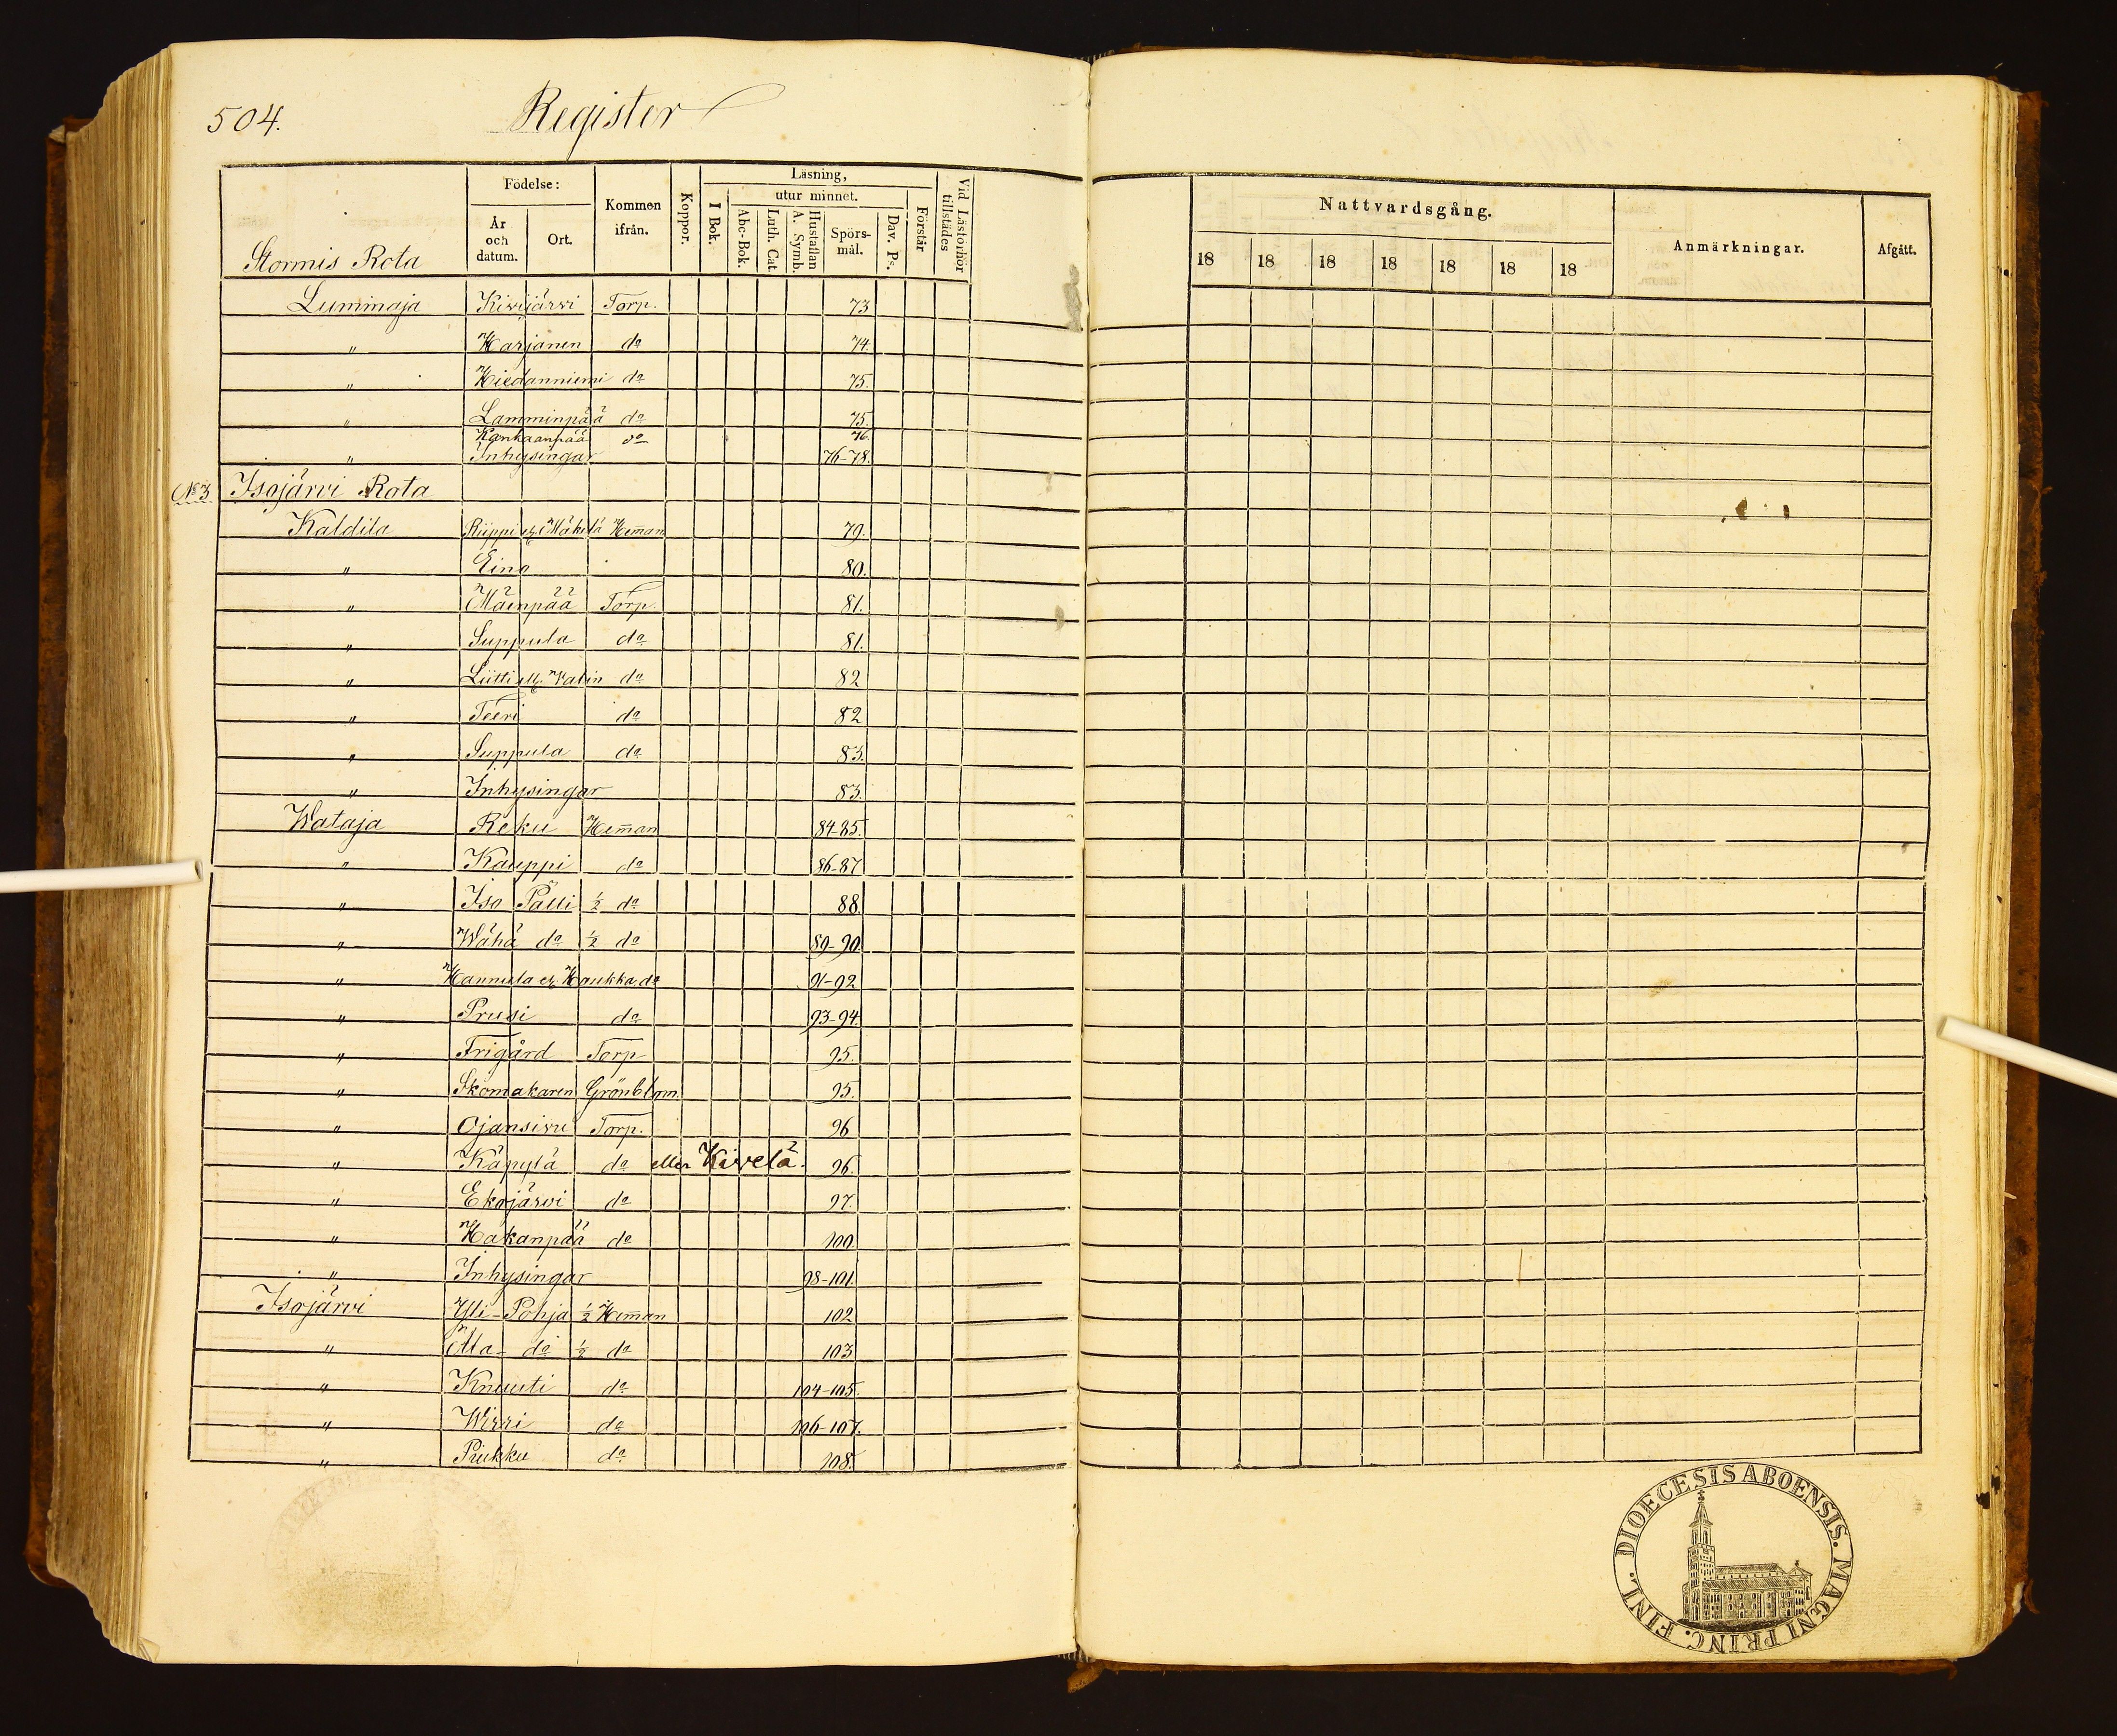 504.
Register
Födelse:
År och datum.
Ort.
Kommen ifrån.
Koppor.
Läsning,
utur minnet.
I Bok.
Abc-Bok.
Luth. Cat.
Hustaflan A. Symb.
Spörs-mål.
Dav. Ps.
Förstår
Vid Läsförhör tillstädes
Nattvardsgång.
18 18 18 18 18 18 18
Anmärkningar.
Afgått.
Stormis Rota
Lummaja Kivijärvi Torp. 73
" Harjanen do 74.
" Hiedanniemi do 75.
" Lamminpää do 75.
Kankaanpää do 76.
" Inhysingar 76-78.
No 3. Isojärvi Rota
Kaldila Riippi el. Mäkelä Hemman 79.
" Eino 80.
" Mäenpää Torp. 81.
" Suppula do 81.
" Liitti ell. Valin do 82
" Teeri do 82
" Suppula do 83.
" Inhysingar 83.
Wataja Reku Hemman 84-85.
" Kauppi do 86-87
" Iso Pälli ½ do 88.
" Wähä do ½ do 89-90.
" Hannula el. Haukka do 91-92
" Prusi do 93-94.
" Frigård Torp 95.
" Skomakaren Grönblom. 95.
" Ojansivu Torp. 96
" Käpylä do eller Kivelä. 96.
" Ekojärvi do 97.
" Hakanpää do 100.
" Inhysingar 98-101.
Isojärvi Yli-Pohja ½ Hemman 102
" Ala- do ½ do 103
" Knuuti do 104-105.
" Wirri do 106-107.
" Piukku do 108.
DIOECESIS ABOENSIS. MAGNI PRINC. FINL.